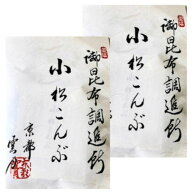 御昆布調進所
小松こんぶ
京都
雲月
御昆布調進所
小松こんぶ